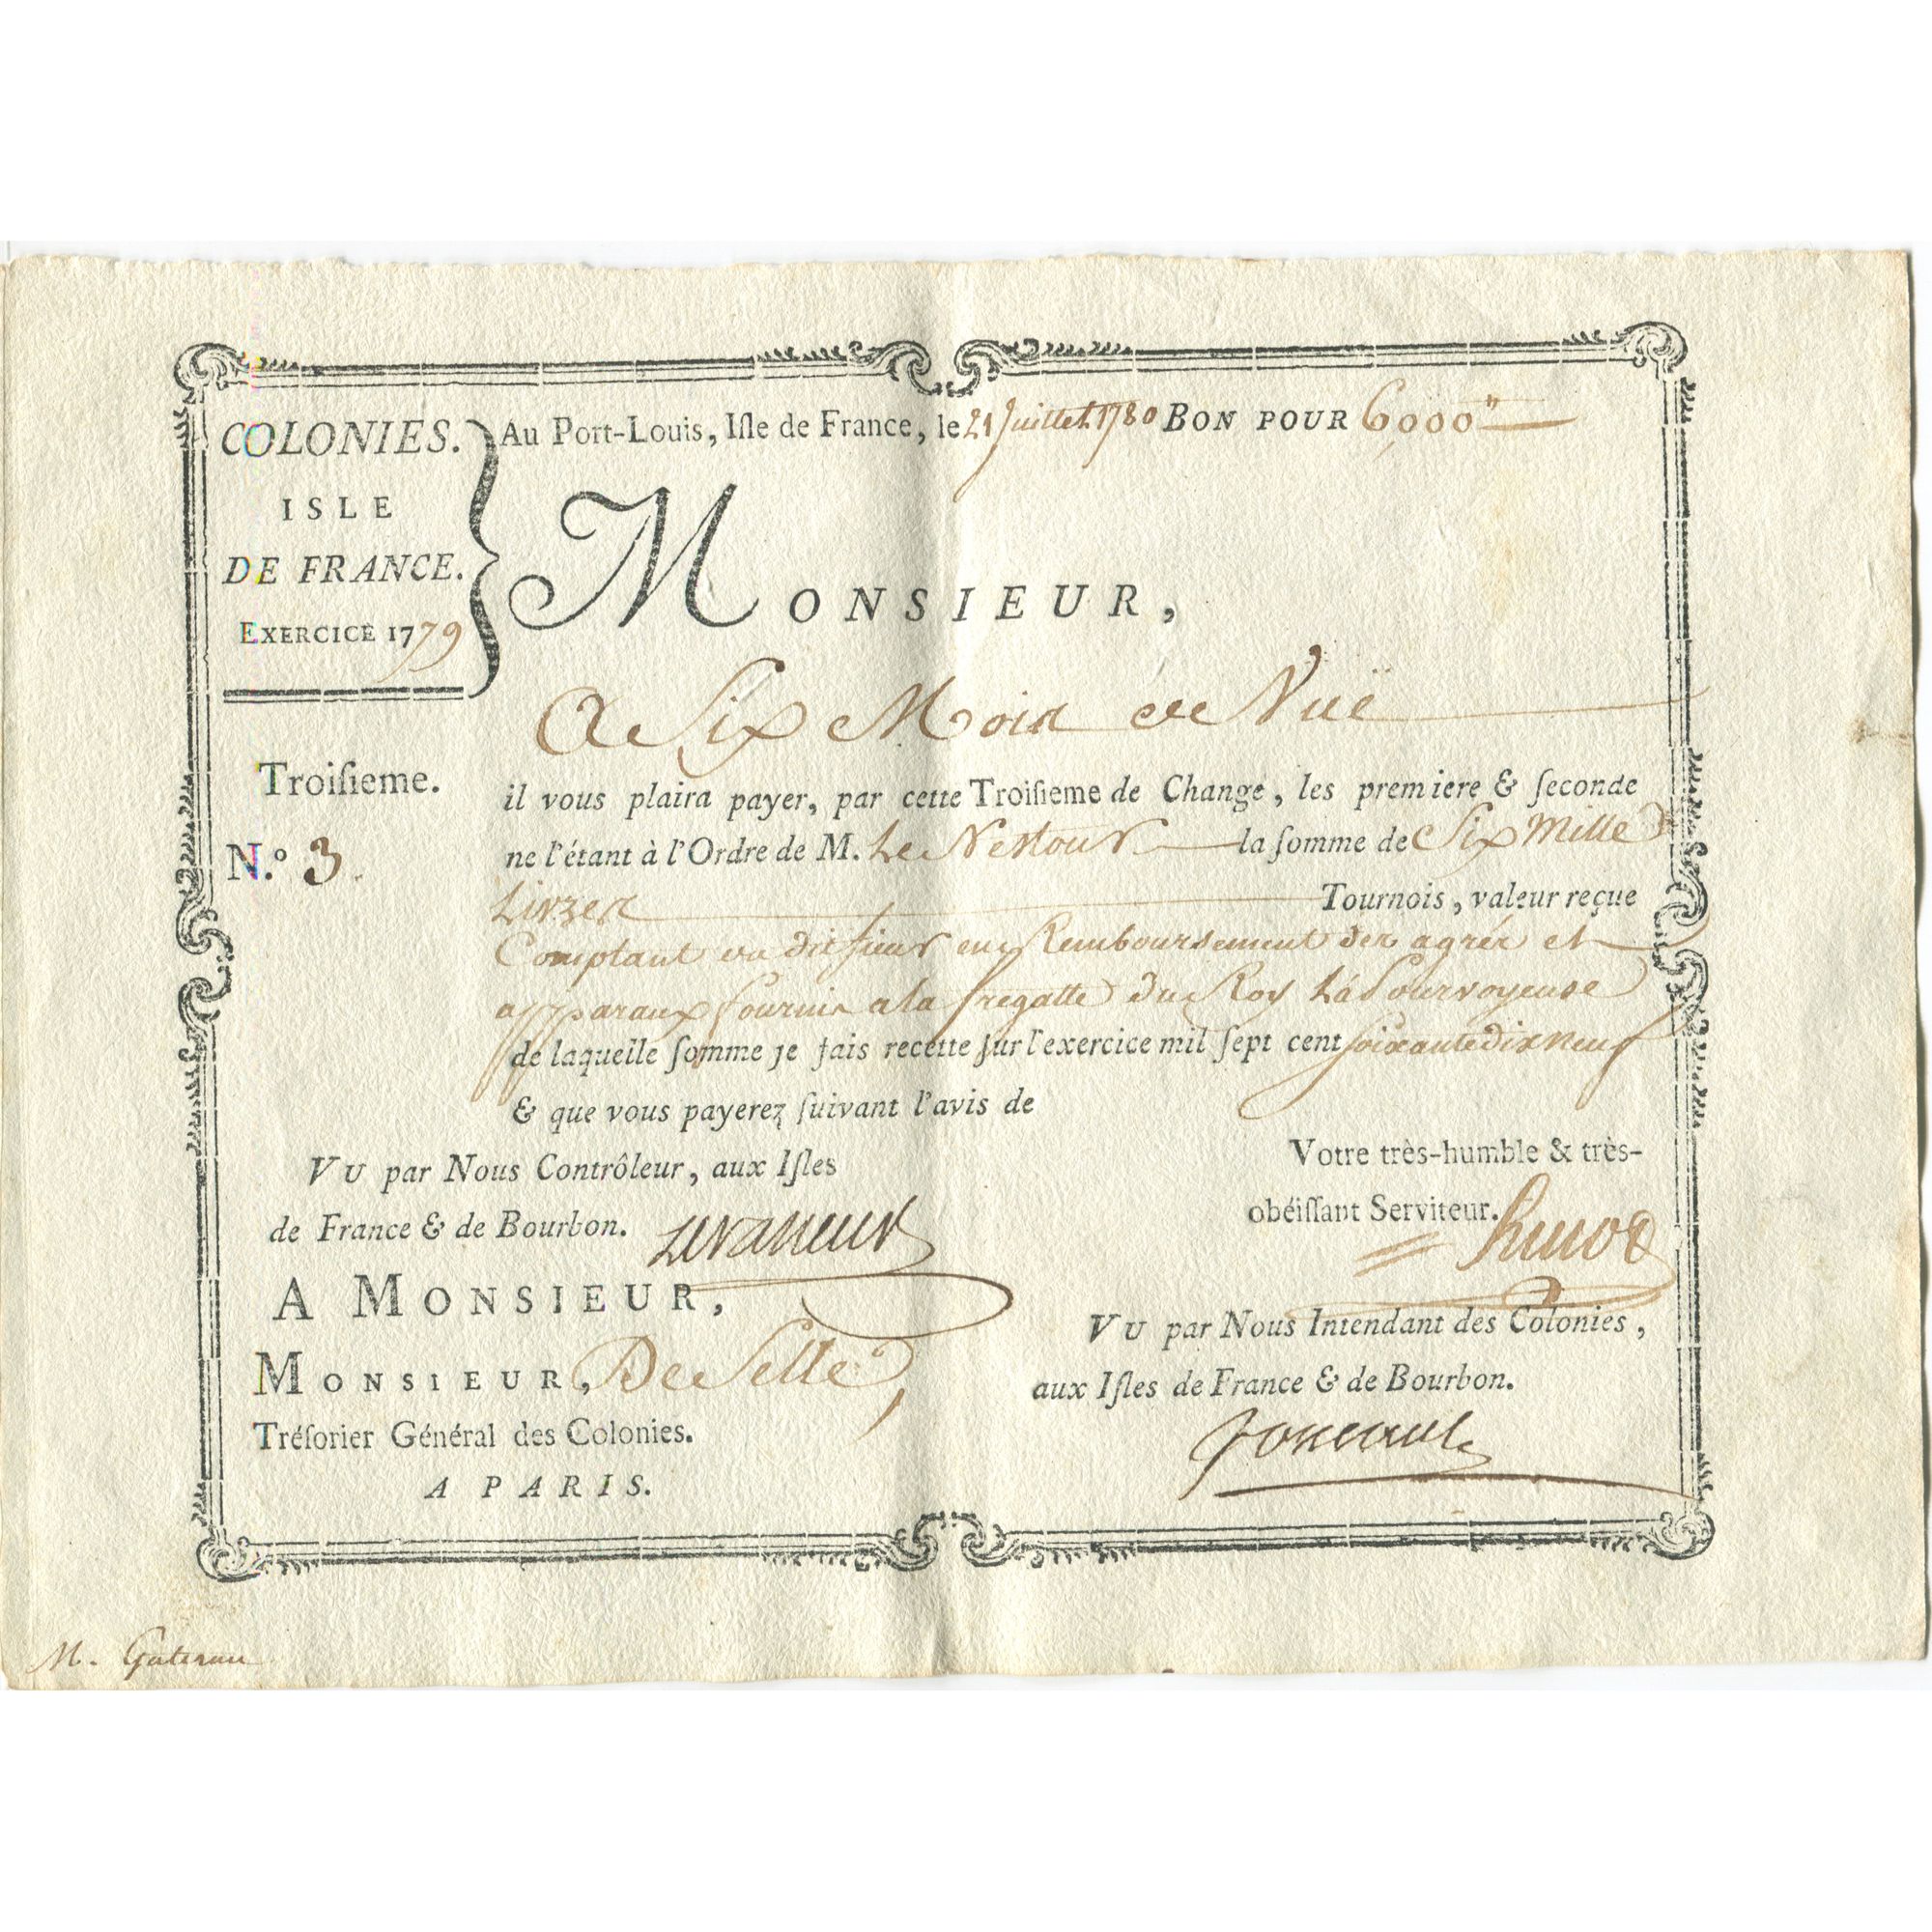 COLONIES.
ISLE
DE FRANCE.
EXERCICE 1779
Au Port-Louis, Iſle de France, le 21 Juillet 1780 BON POUR 6000"
MONSIEUR,
A Six Mois de Vuë
Troiſieme.
N.º 3.
il vous plaira payer, par cette Troiſieme de Change, les premiere & ſeconde
ne l'étant à l'Ordre de M. Le Nestour la ſomme de Six Mille
Livres Tournois, valeur reçue
Comptant du dit sieur en Remboursement des agrés et
apparaux fournis a la fregatte du Roy La Pourvoyeuse
de laquelle ſomme je fais recette ſur l'exercice mil ſept cent soixante dix neuf
& que vous payerez ſuivant l'avis de
Votre très-humble & très-
obéiſſant Serviteur.
VU par Nous Contrôleur, aux Iſles
de France & de Bourbon. Levasseur
A MONSIEUR,
MONSIEUR, De Selle,
Tréſorier Général des Colonies.
A PARIS.
VU par Nous Intendant des Colonies,
aux Iſles de France & de Bourbon.
Foucault
M.